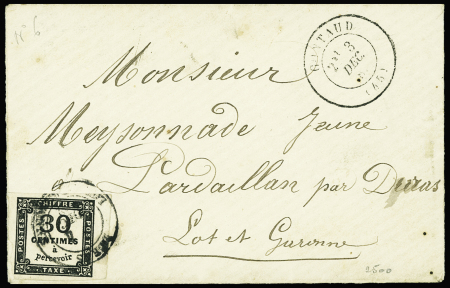 N° 6
GONTAUD
3
DEC
(45)
Monsieur
Meyssonnade Jeune
à Lardaillan par Duras
Lot et Garonne
CHIFFRE
POSTES
30
CENTIMES
à
percevoir
POSTES
TAXE
2500